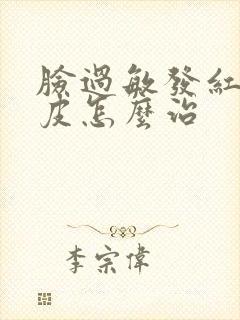 臉過敏發紅
皮怎麼治
李宗偉